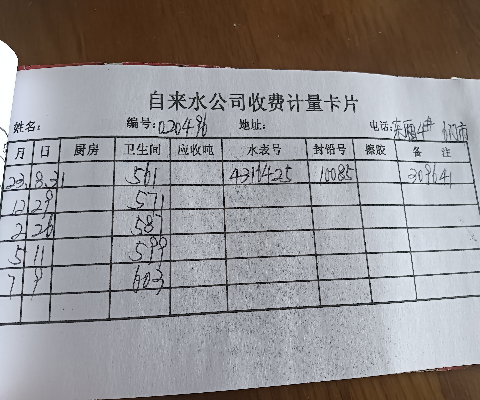 自来水公司收费计量卡片
姓名: 编号: 020496 地址: 电话: 东厢4#
月 日 厨房 卫生间 应收吨 水表号 封铅号 擦胶 备 注
23. 8.31 561 4319425 10085 309641
12 29 571
2 26 585
5 11 599
7 9 603